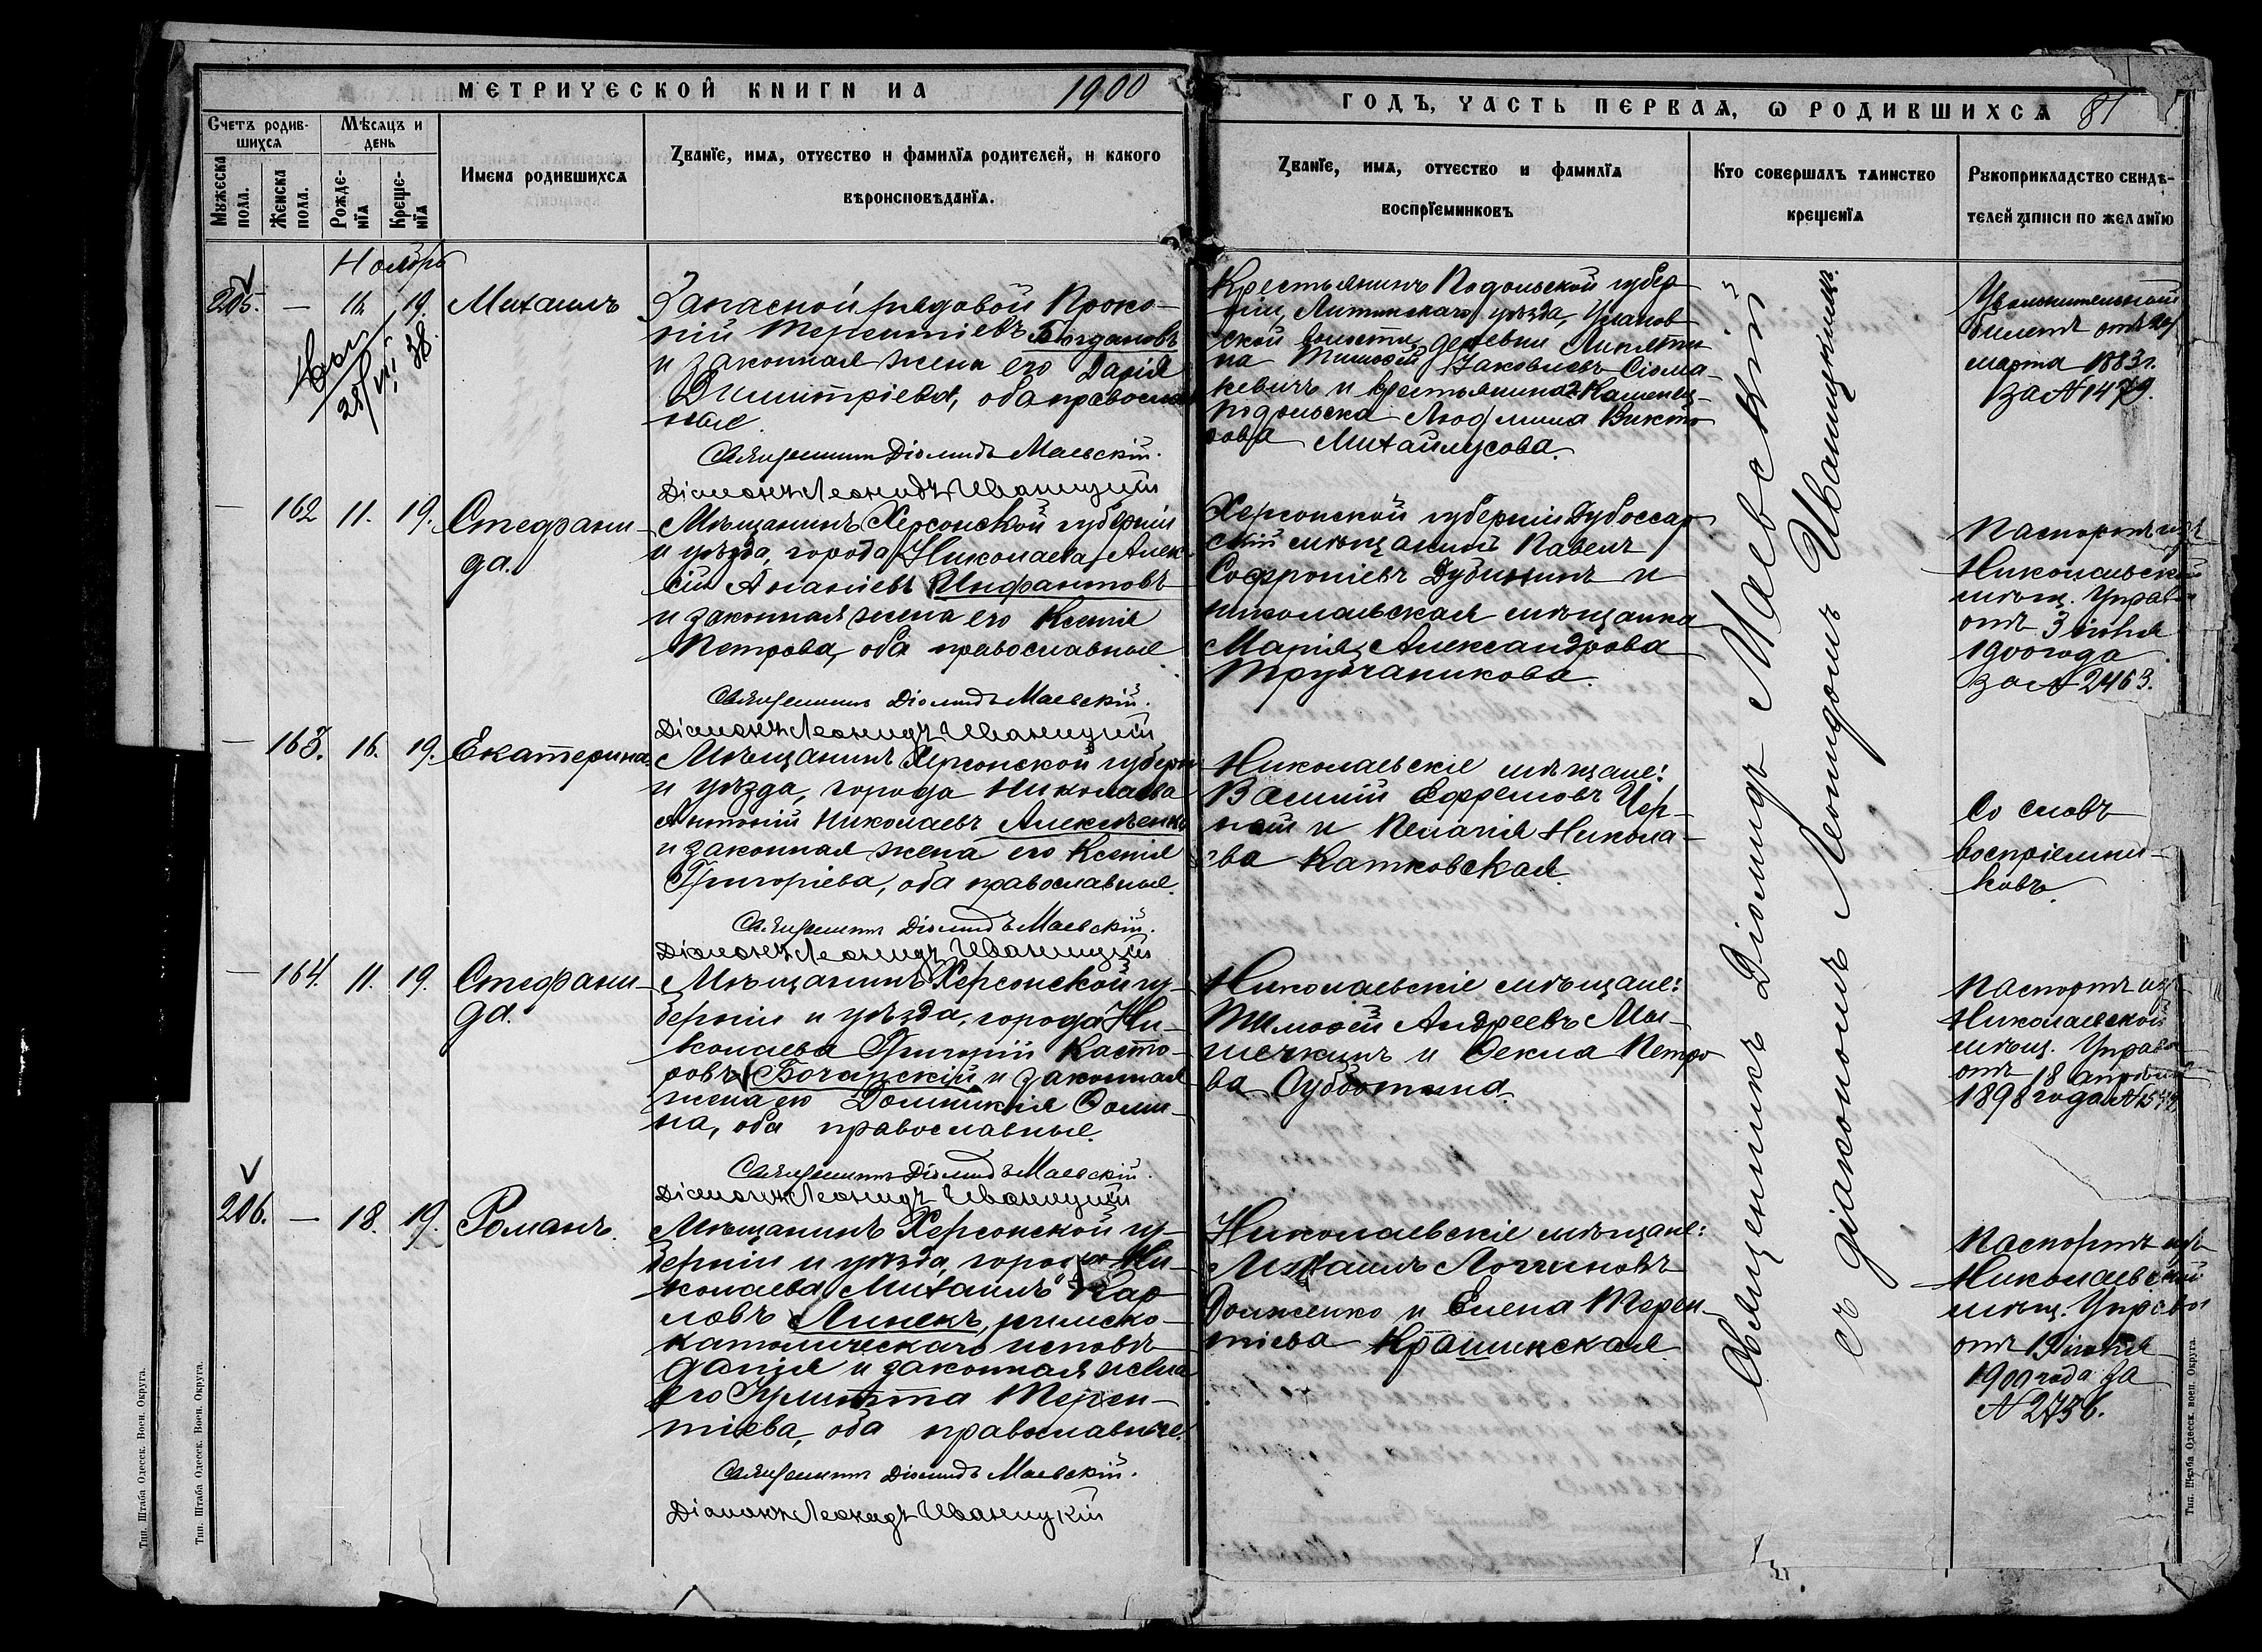 МЕТРИЧЕСКОЙ КНИГИ НА 1900
ГОДЪ, ЧАСТЬ ПЕРВАЯ, Ѡ РОДИВШИХСЯ 81
Счетъ родив-
шихся
Мѣсяцъ и
день
Мужеска
пола.
Женска
пола.
Рожде-
нія
Креще-
нія
Имена родившихся
Званїе, имя, отчество и фамилїя родителей, и какого
вѣроисповѣданїя.
Званїе, имя, отчество и фамилїя
воспрїемниковъ
Кто совершалъ таинство
крещенїя
Рукоприкладство свидѣ-
телей записи по желанїю
Ноябрь
205. — 19. Михаилъ
Запасной рядовой Проко-
пій Терентіевъ Богдановъ
и законная жена его Дарія
Димитріева, оба православ
ные.
Священникъ Діомидъ Маевскій.
Діаконъ Леонидъ Иваницкій
Крестьянинъ Подольской губер
ніи, Литинскаго уѣзда, Уланов
ской волости, деревни
на Тимофей Іаковлевъ Сіома-
кевичъ и крестьянина Каменец-
подольска Людмила Викто
рова Михайлусова.
Увольнительный
билетъ отъ
марта 1883 г.
за № 1479.
28/VII 38.
— 162 11. 19. Стефани-
да.
Мѣщанинъ Херсонской губерніи
и уѣзда, города Николаева Алек-
сій Ананіевъ Инфантовъ
и законная жена его Ксенія
Петрова, оба православные
Священникъ Діомидъ Маевскій.
Діаконъ Леонидъ Иваницкій
Херсонской губерніи Дубоссар-
скій мѣщанинъ Павелъ
Софроніевъ Дубининъ и
николаевская мѣщанка
Марія Александрова
Трубчаникова.
Паспортъ изъ
Николаевской
мѣщ. Управы
отъ 3 іюня
1900 года
за № 2463.
— 163. 16. 19. Екатерина.
Мѣщанинъ Херсонской губерніи
и уѣзда, города Николаева
Антоній Николаевъ Алексѣенко
и законная жена его Ксенія
Григоріева, оба православные.
Священникъ Діомидъ Маевскій.
Діаконъ Леонидъ Иваницкій
Николаевскіе мѣщане:
Василій Ефремовъ Чер-
ный и Пелагія Никола-
ева Катковская.
Со словъ
воспріемни-
ковъ.
— 164. 11. 19. Стефани-
да.
Мѣщанинъ Херсонской гу-
берніи и уѣзда, города Ни-
колаева Григорій Касто-
ровъ Бочарскій и законная
жена его Домникія Ѳоми-
на, оба православные.
Священникъ Діомидъ Маевскій.
Діаконъ Леонидъ Иваницкій
Николаевскіе мѣщане:
Тимофей Андреевъ Мы-
шечкинъ и Ѳекла Петро
ва Субботина.
Паспортъ изъ
Николаевской
мѣщ. Управы
отъ 18 апрѣля
1898 года
206. — 18. 19. Романъ.
Мѣщанинъ Херсонской гу-
берніи и уѣзда, города Ни-
колаева Михаилъ Кар
ловъ Линекъ, римско-
католическаго исповѣ-
данія и законная жена
его Терен-
тіева, оба православные.
Священникъ Діомидъ Маевскій.
Діаконъ Леонидъ Иваницкій
Николаевскіе мѣщане:
Михаилъ Логгиновъ
Долженко и Елена Терен-
тіева Крашинская.
Паспортъ изъ
Николаевской
мѣщ. Управы
отъ 19 іюня
1900 года за
№ 2756.
Священникъ Діомидъ Маевскій
съ діакономъ Леонидомъ Иваницкимъ.
Тип. Штаба Одесск. Воен. Округа.
Тип. Штаба Одесск. Воен. Округа.
Тип. Штаба Одесск. воен. Округа.